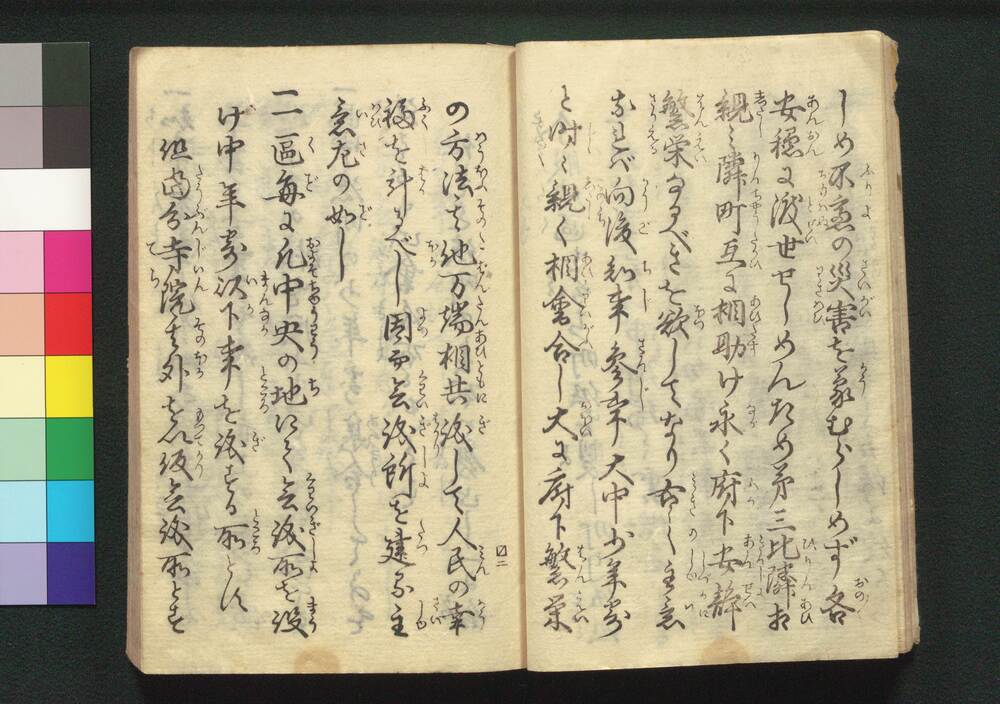 しめ不慮の災害を蒙むらしめず各
安穏に渡世せしめんため第三比隣相
親しみ隣町互に相助け永く府下安静
繁栄なるべきを欲してなり右之主意
なれば向後知事参事大中少年寄
と時々親く相會合し大に府下繁栄
の方法其他万端相共議して人民の幸
福を計るべし因而会議所を建る主
意左の如し
一 一區毎に凡中央の地にて会議所を設
け中年寄以下事を議する所とす
但当分寺院其外を以仮会議所とす